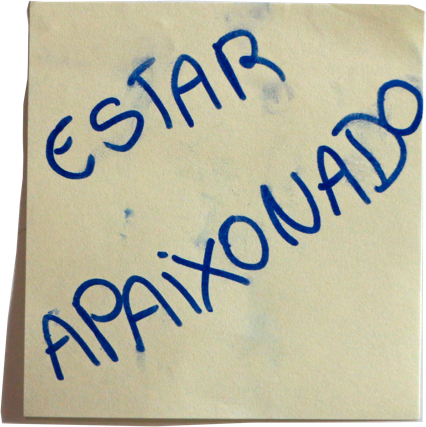 ESTAR
APAIXONADO